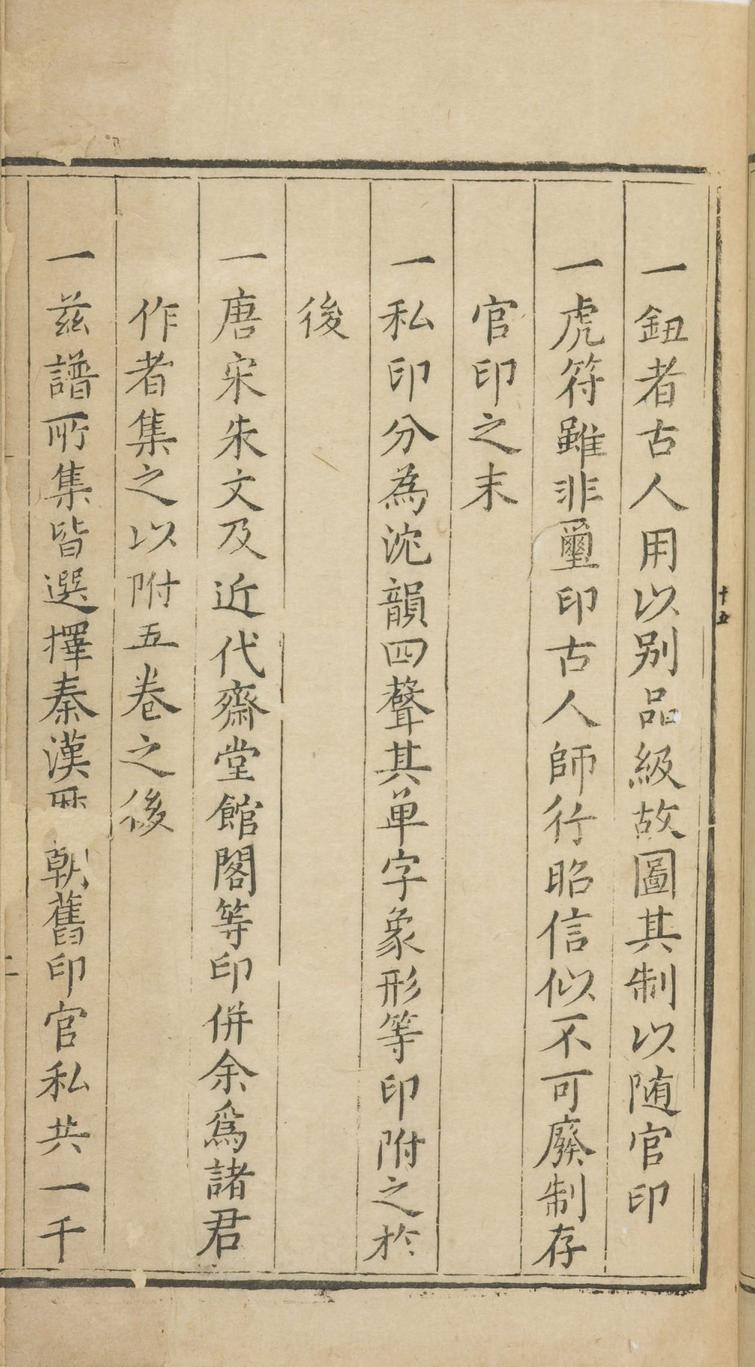 一鈕者古人用以别品級故圖其制以随官印
一虎符雖非璽印古人師行昭信似不可廢制存
官印之末
一私印分為沈韻四聲其单字象形等印附之於
後
一唐宋朱文及近代齋堂館閣等印併余爲諸君
作者集之以附五卷之後
一茲譜所集皆選擇秦漢 朝舊印官私共一千
十五